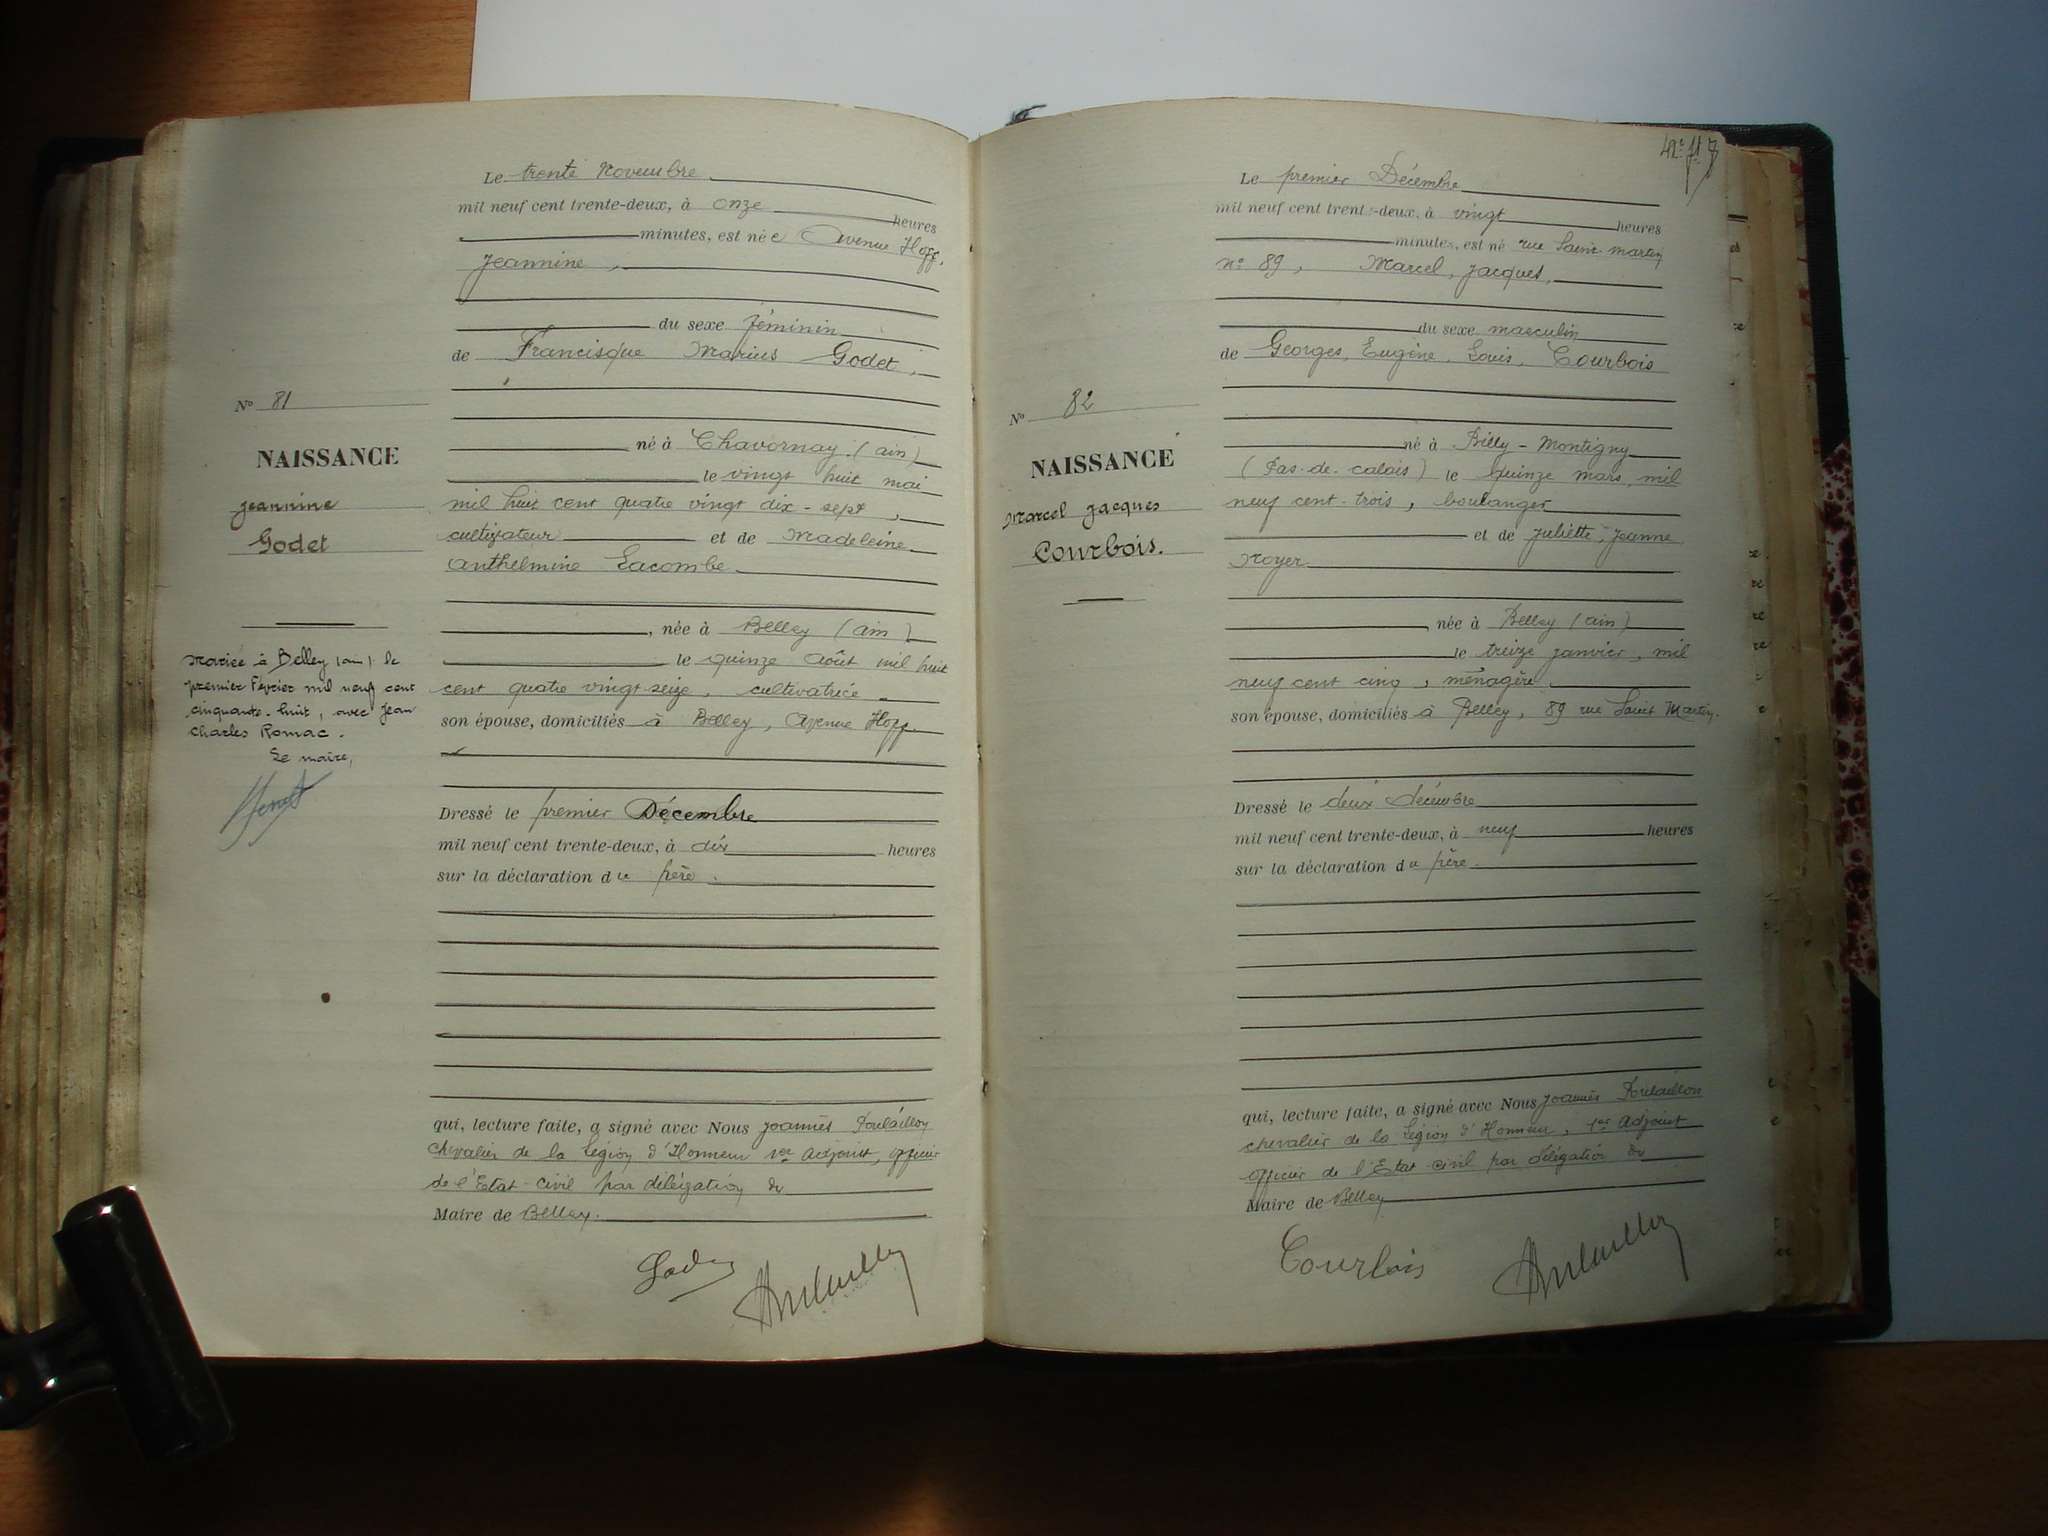 Le trente Novembre
mil neuf cent trente-deux, à onze heures
minutes, est née Avenue Hoff,
Jeannine,
du sexe féminin
de Francisque Marius Godet,
né à Chavornay (ain)
le vingt huit mai
mil huit cent quatre vingt dix-sept,
cultivateur et de Madeleine
Anthelmine Lacombe
, née à Belley (ain)
le quinze Août mil huit
cent quatre vingt-seize, cultivatrice
son épouse, domiciliés à Belley, Avenue Hoff.
Dressé le premier Décembre
mil neuf cent trente-deux, à dix heures
sur la déclaration du père.
qui, lecture faite, a signé avec Nous Joannès
chevalier de la Légion d'Honneur 1er Adjoint, officier
de l'Etat-civil par délégation du
Maire de Belley.
No 81
NAISSANCE
Jeannine
Godet
Mariée à Belley (ain) le
premier Février mil neuf cent
cinquante-huit, avec Jean
Charles Romac.
Le maire,
Le premier Décembre
mil neuf cent trente-deux, à vingt heures
minutes, est né rue Saint-Martin
n° 89, Marcel, Jacques,
du sexe masculin
de Georges, Eugène, Louis, Courbois
né à Billy-Montigny
(Pas-de-calais) le quinze mars, mil
neuf cent-trois, boulanger
et de Juliette, Jeanne
Royer
, née à Belley (ain)
le treize janvier, mil
neuf cent cinq, ménagère
son épouse, domiciliés à Belley, 89 rue Saint Martin.
Dressé le deux décembre
mil neuf cent trente-deux, à neuf heures
sur la déclaration du père.
qui, lecture faite, a signé avec Nous Joannès
chevalier de la Légion d'Honneur, 1er Adjoint
officier de l'Etat-civil par délégation du
Maire de Belley
Courbois
No 82
NAISSANCE
Marcel Jacques
Courbois.